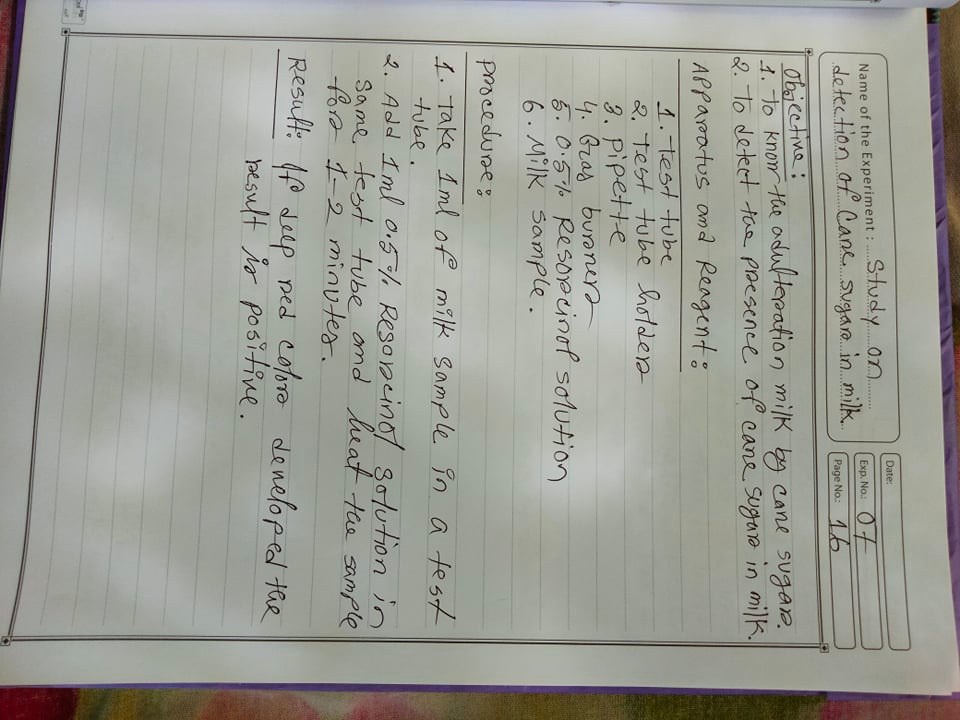 Name of the Experiment : Study on
detection of Cane sugar in milk
Date:
Exp. No.: 07
Page No.: 16
Objective :
1. To know the adulteration milk by cane sugar.
2. To detect the presence of cane sugar in milk.
Apparatus and Reagent :
1. Test tube
2. Test tube holder
3. Pipette
4. Gas burner
5. 0.5% Resorcinol solution
6. Milk sample.
Procedure :
1. Take 1ml of milk sample in a test
tube.
2. Add 1ml 0.5% Resorcinol solution in
same test tube and heat the sample
for 1-2 minutes.
Result: If deep red color developed the
result is positive.